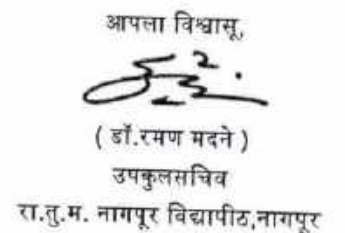 आपला विश्वासू,
( डॉ.रमण मदने )
उपकुलसचिव
रा.तु.म. नागपूर विद्यापीठ,नागपूर